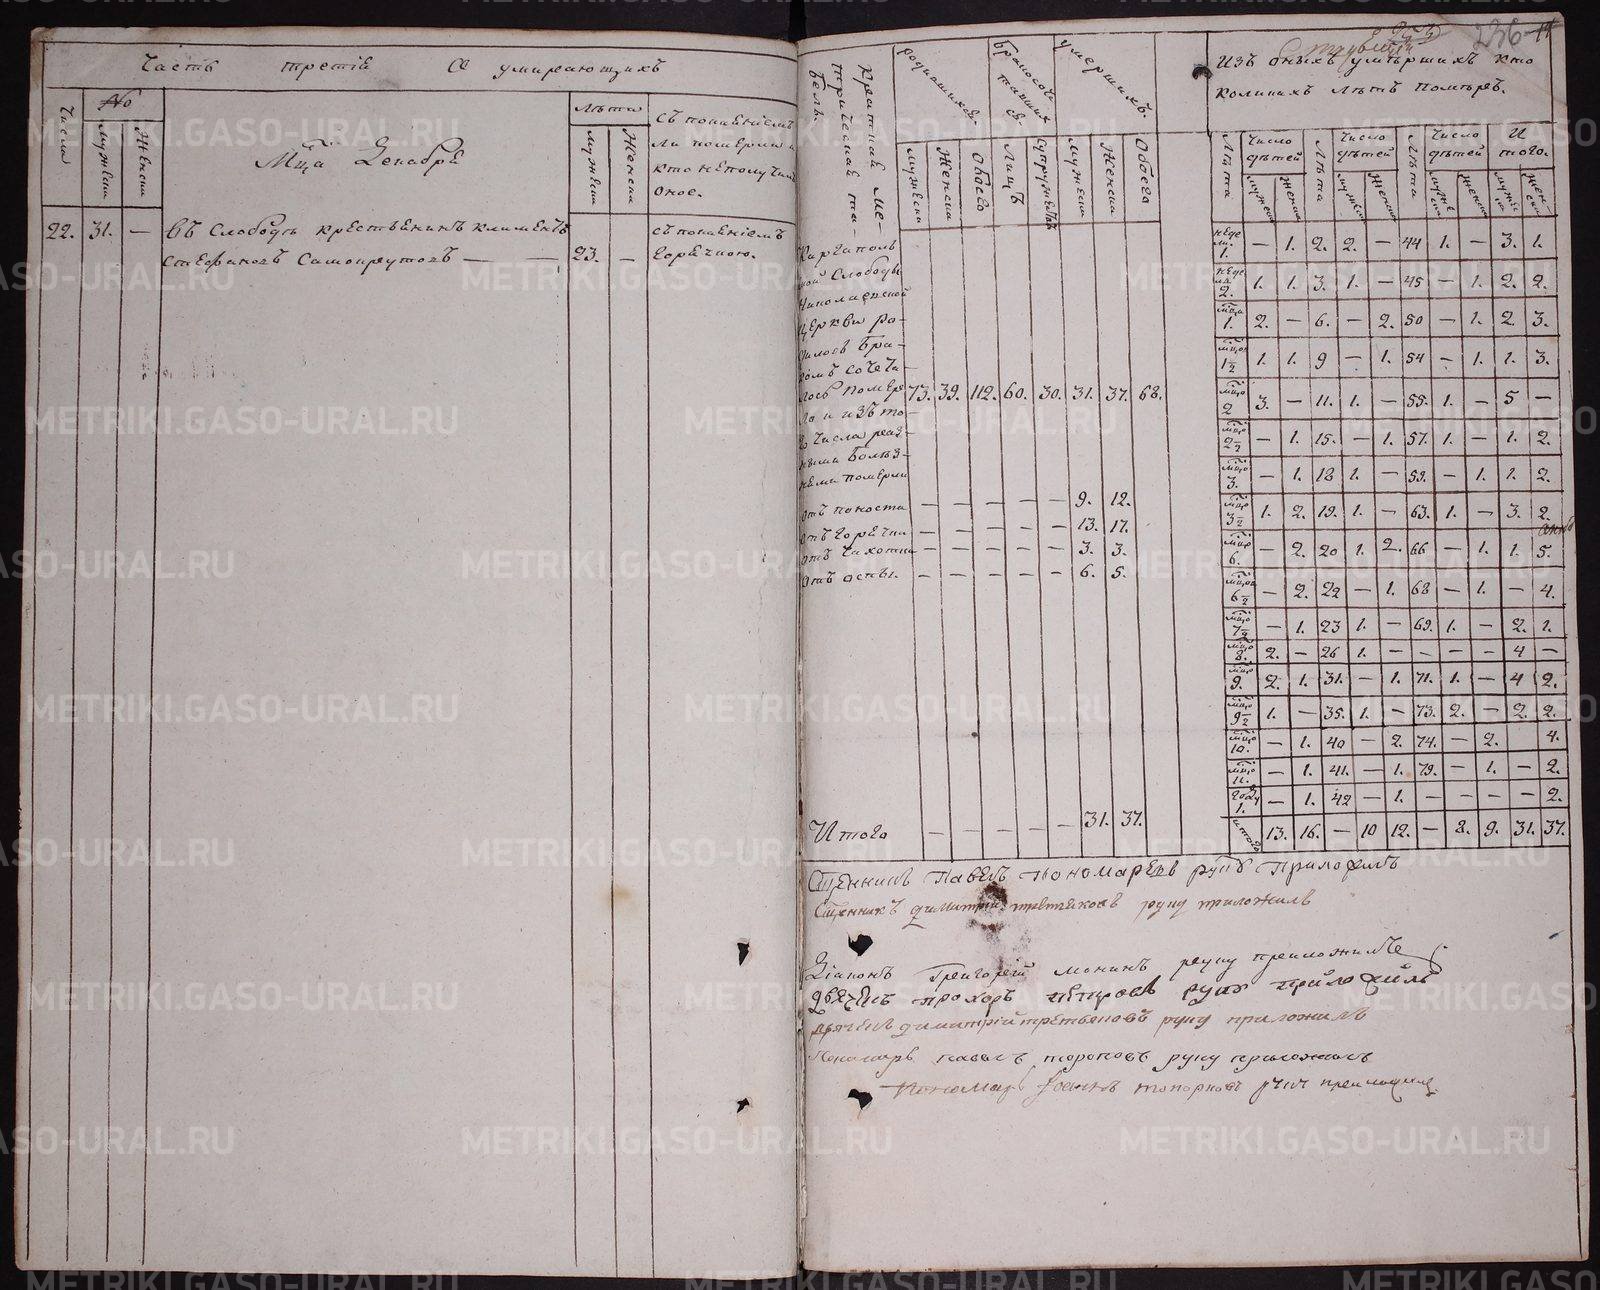 Часть третія О умирающихъ
Числа
No
Мужески
Женски
Мца Декабря
Лѣта
Мужески
Женски
съ покаяніемъ
ли померли и
кто не получилъ
оное.
22. 31. — Въ Слободѣ крестьянинъ Климентъ
Стефановъ Самокрутовъ — — 23. —
съ покаяніемъ
горячкою.
236
Краткая ме-
трическая та-
бель.
родившихся.
Бракосоче-
тавших-
ся.
умершихъ.
Мужески
Женски
Обоего
Лицъ
супружествъ
Мужески
Женски
Обоего
Каргаполь
ской Слободы
Николаевской
Церкви ро-
дилось бра-
комъ сочета-
лось помере
ло и изъ то-
го числа раз-
ными Болѣз-
нями померли
73. 39. 112. 60. 30. 31. 37. 68.
отъ поноста — — — — — 9. 12.
отъ горячки — — — — — 13. 17.
отъ чахотки — — — — — 3. 3.
отъ оспы. — — — — — 6. 5.
Итого — — — — — 31. 37.
Изъ оныхъ умершихъ кто
коликихъ лѣтъ помѣръ.
Лѣта
Число дѣтей
Лѣта
Число дѣтей
Лѣта
Число дѣтей
И того.
недели. 1. — 1. 2. 2. — 44 1. — 3. 1.
неде 2. 1. 1. 3. 1. — 45 — 1. 2. 2.
мца 1. 2. — 6. — 2. 50 — 1. 2. 3.
мца 1½ 1. 1. 9 — 1. 54 — 1. 1. 3.
мцо 2 3. — 11. 1. — 55. 1. — 5 —
мцо 2½ — 1. 15. — 1. 57. 1. — 1. 2.
мцо 3. — 1. 18 1. — 59. — 1. 1. 2.
мцо 3½ 1. 2. 19. 1. — 63. 1. — 3. 2.
мцо 6. — 2. 20 1. 2. 66 — 1. 1. 5.
мцо 6½ — 2. 22 — 1. 68 — 1. — 4.
мцо 7½ — 1. 23 1. — 69. 1. — 2. 1.
мцо 8. 2. — 26 1. — — — — 4 —
мцо 9. 2. 1. 31. — 1. 71. 1. — 4 2.
мцо 9½ 1. — 35. 1. — 73. 2. — 2. 2.
мцо 10. — 1. 40 — 2. 74. — 2. 4.
мцо 11. — 1. 41. — 1. 79. — 1. — 2.
году 1. — 1. 42 — 1. — — — — 2.
итого 13. 16. — 10 12. — 8. 9. 31. 37.
Сщенникъ Павелъ Пономаревъ руку Приложилъ
Сщенникъ Димитрій Третьяковъ руку приложилъ
Діаконъ Григорей Мокинъ руку приложилъ
дьячекъ прохоръ петровъ руку приложилъ
дьячекъ димитрій третьяковъ руку приложилъ
Пономарь павелъ топорковъ руку приложилъ
Пономарь Іоаннъ топорковъ руку приложилъ
METRIKI.GASO-URAL.RU